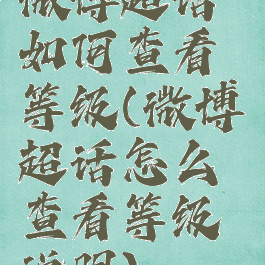 微博超话
如何查看
等级(微博
超话怎么
查看等级
说明)